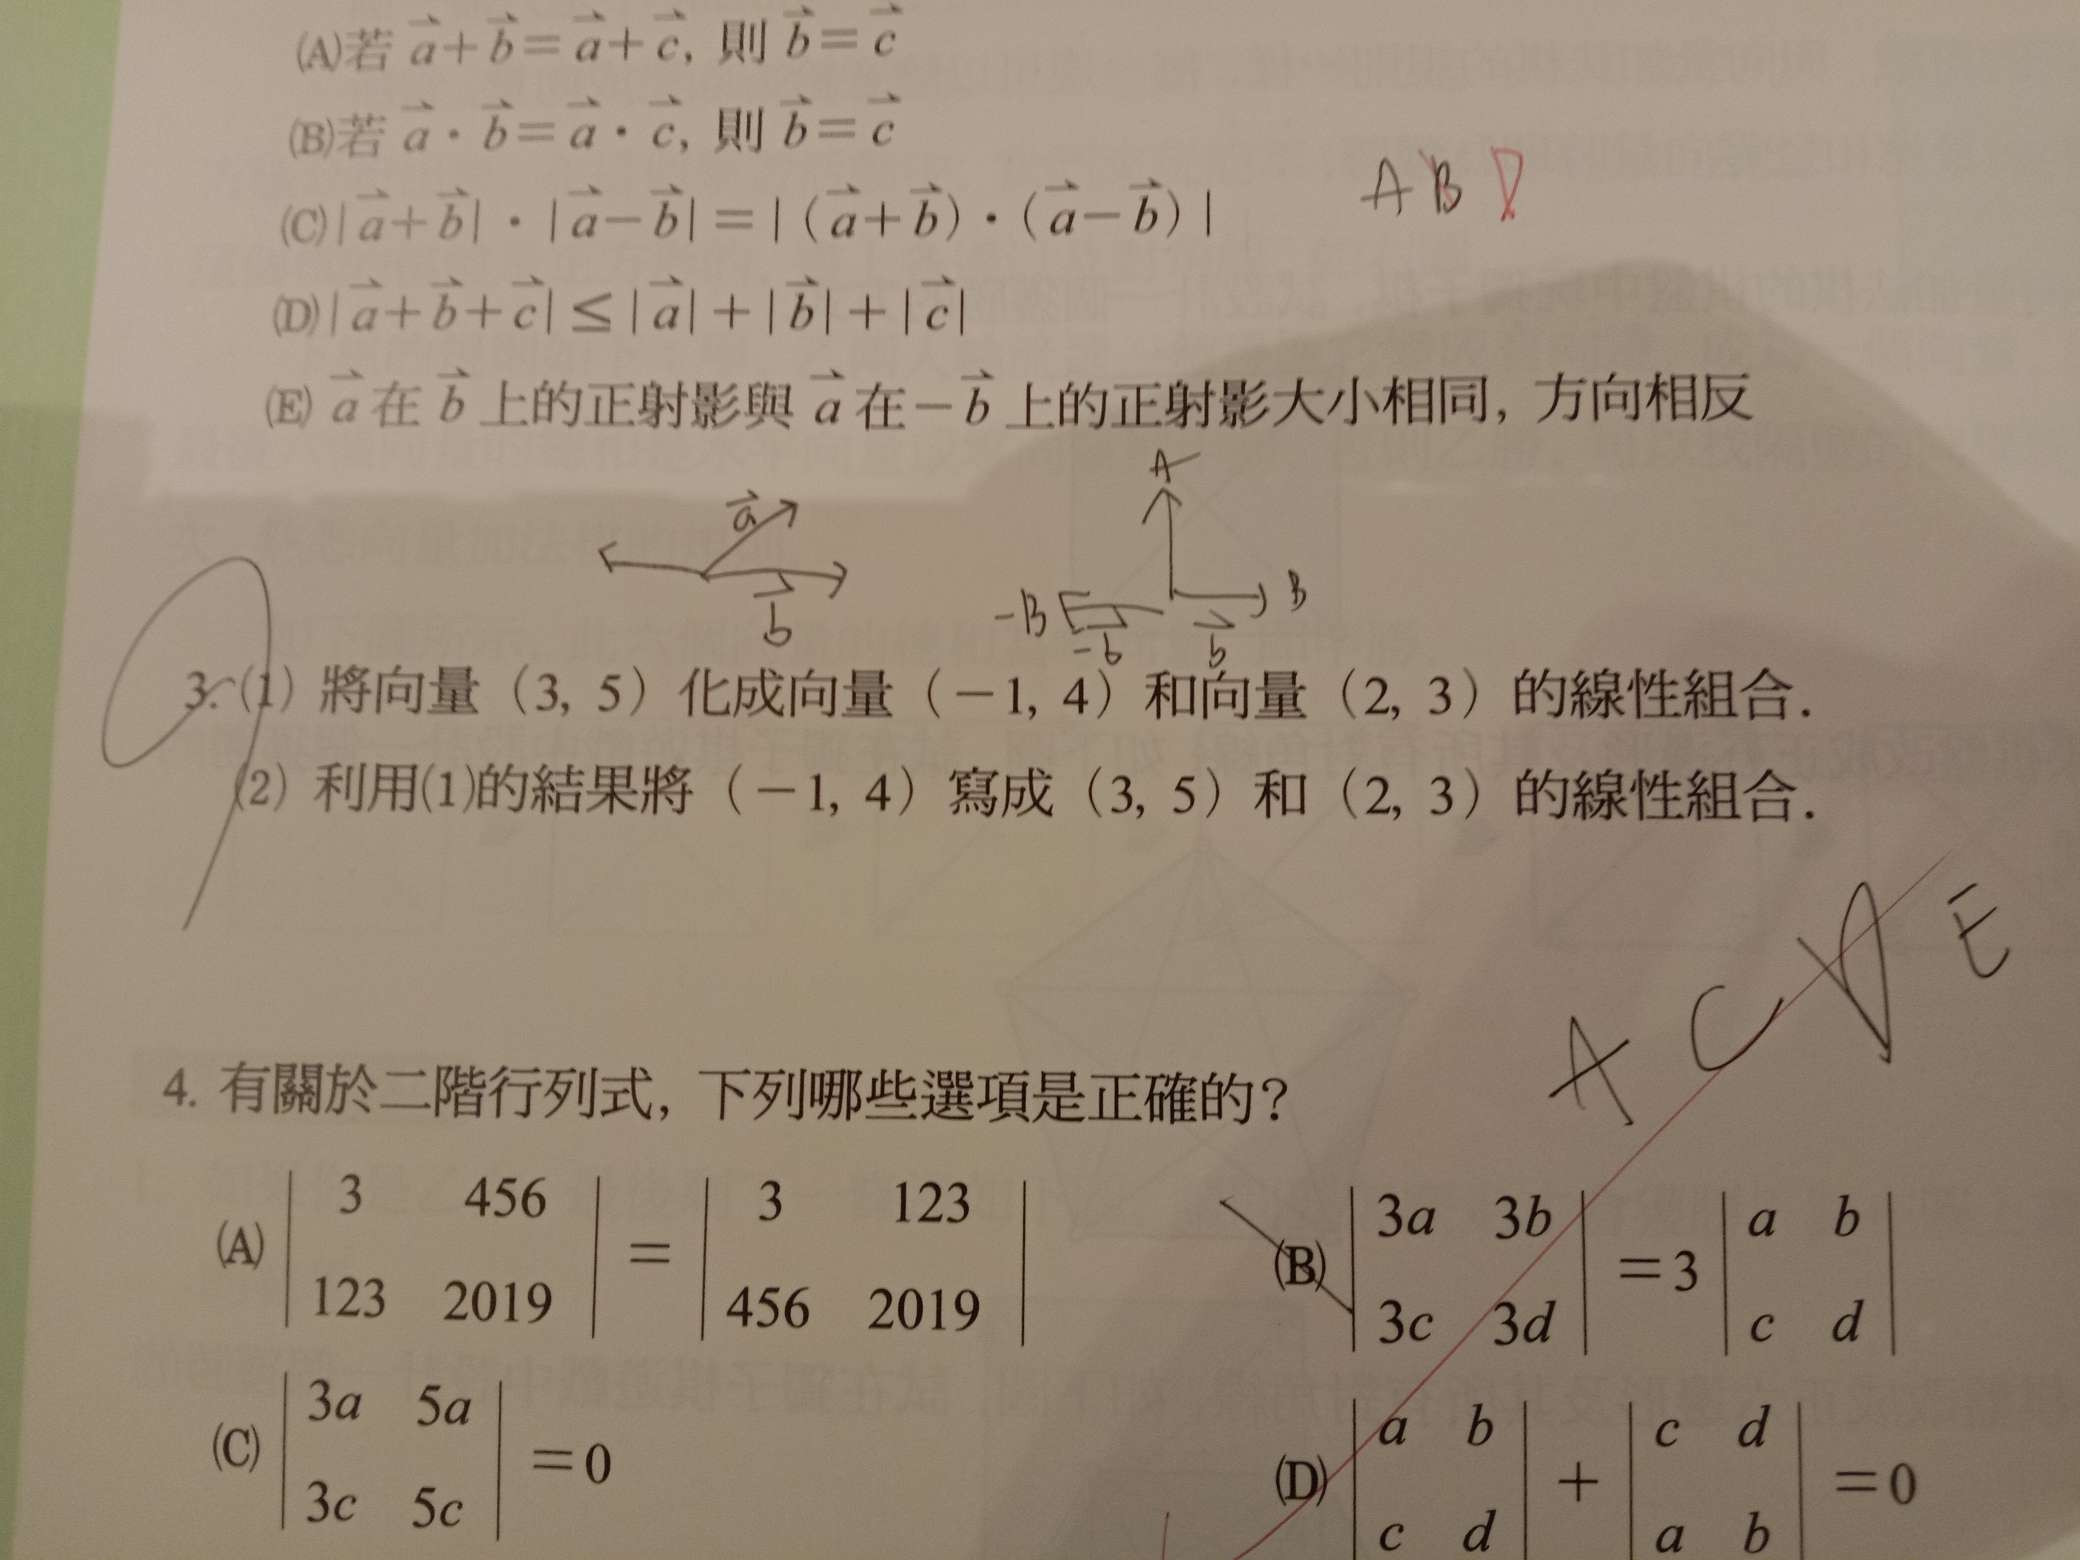 (A)若 a+b=a+c, 則 b=c
(B)若 a·b=a·c, 則 b=c
(C)|a+b|·|a−b|=|(a+b)·(a−b)|
A B D
(D)|a+b+c|≤|a|+|b|+|c|
(E) a 在 b 上的正射影與 a 在−b 上的正射影大小相同, 方向相反
a
b
A
-B
B
-b
b
3.(1) 將向量(3, 5)化成向量(−1, 4)和向量(2, 3)的線性組合.
(2) 利用(1)的結果將(−1, 4)寫成(3, 5)和(2, 3)的線性組合.
A C D E
4. 有關於二階行列式, 下列哪些選項是正確的?
(A) | 3 456 | = | 3 123 | (B) | 3a 3b | =3 | a b |
| 123 2019 | | 456 2019 | | 3c 3d | | c d |
(C) | 3a 5a | =0 (D) | a b | + | c d | =0
| 3c 5c | | c d | | a b |